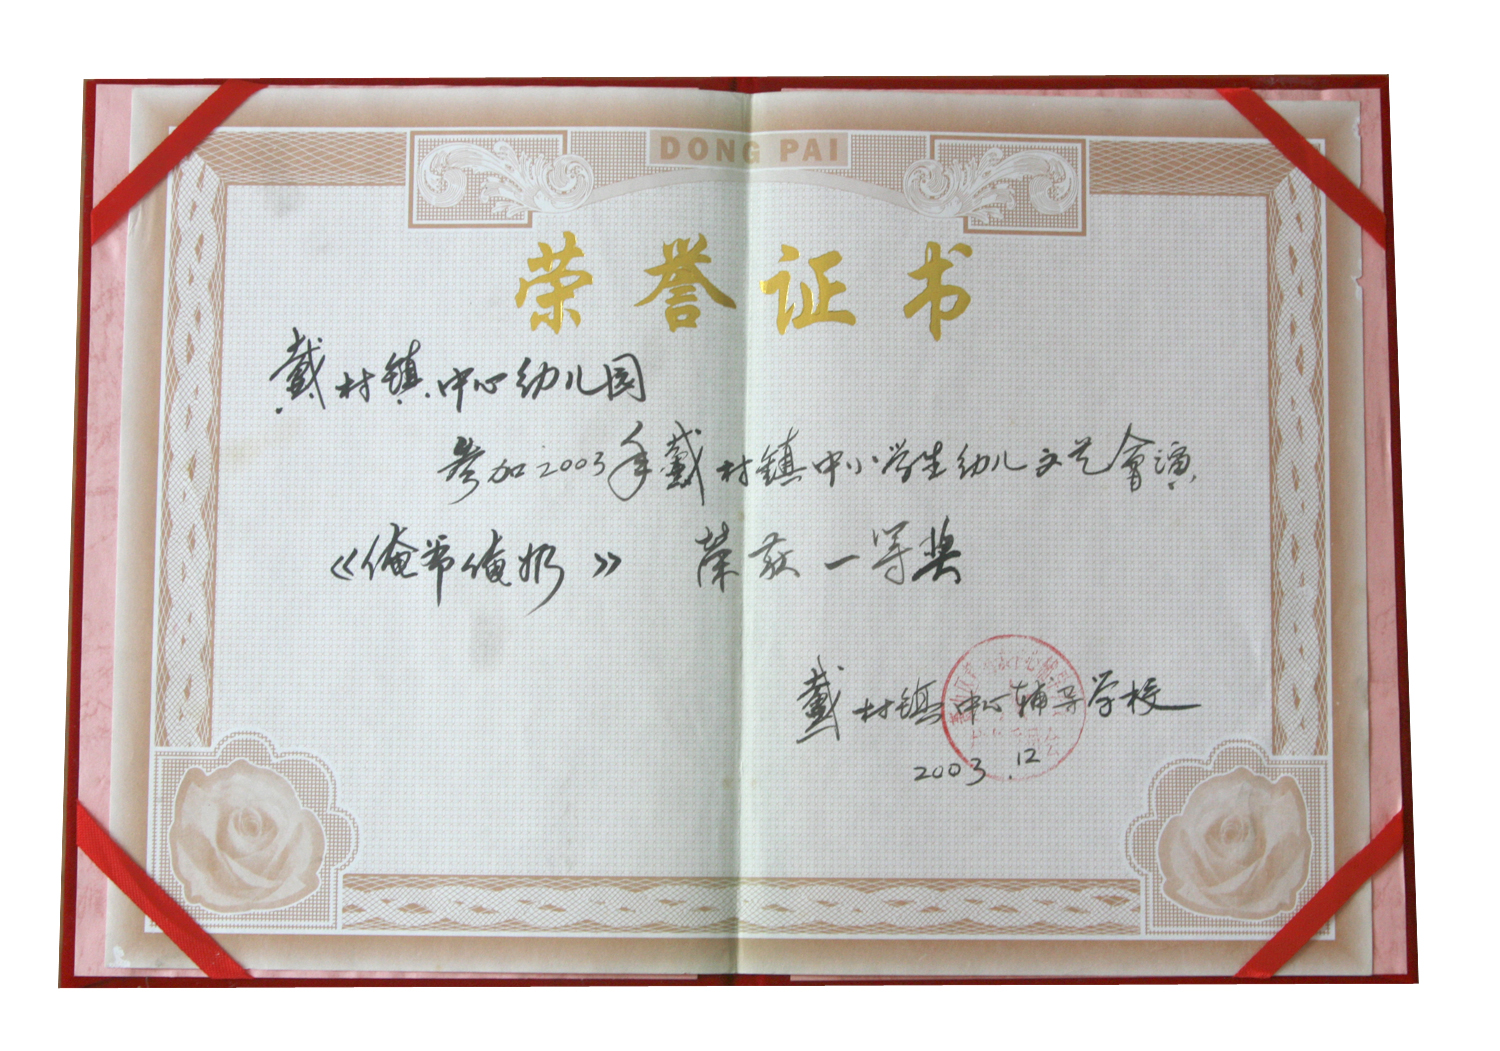 DONG PAI
荣誉证书
戴村镇中心幼儿园
参加2003年戴村镇中小学生幼儿文艺會演
《俺爷俺奶》 荣获一等奖
戴村镇中心辅导学校
2003.12